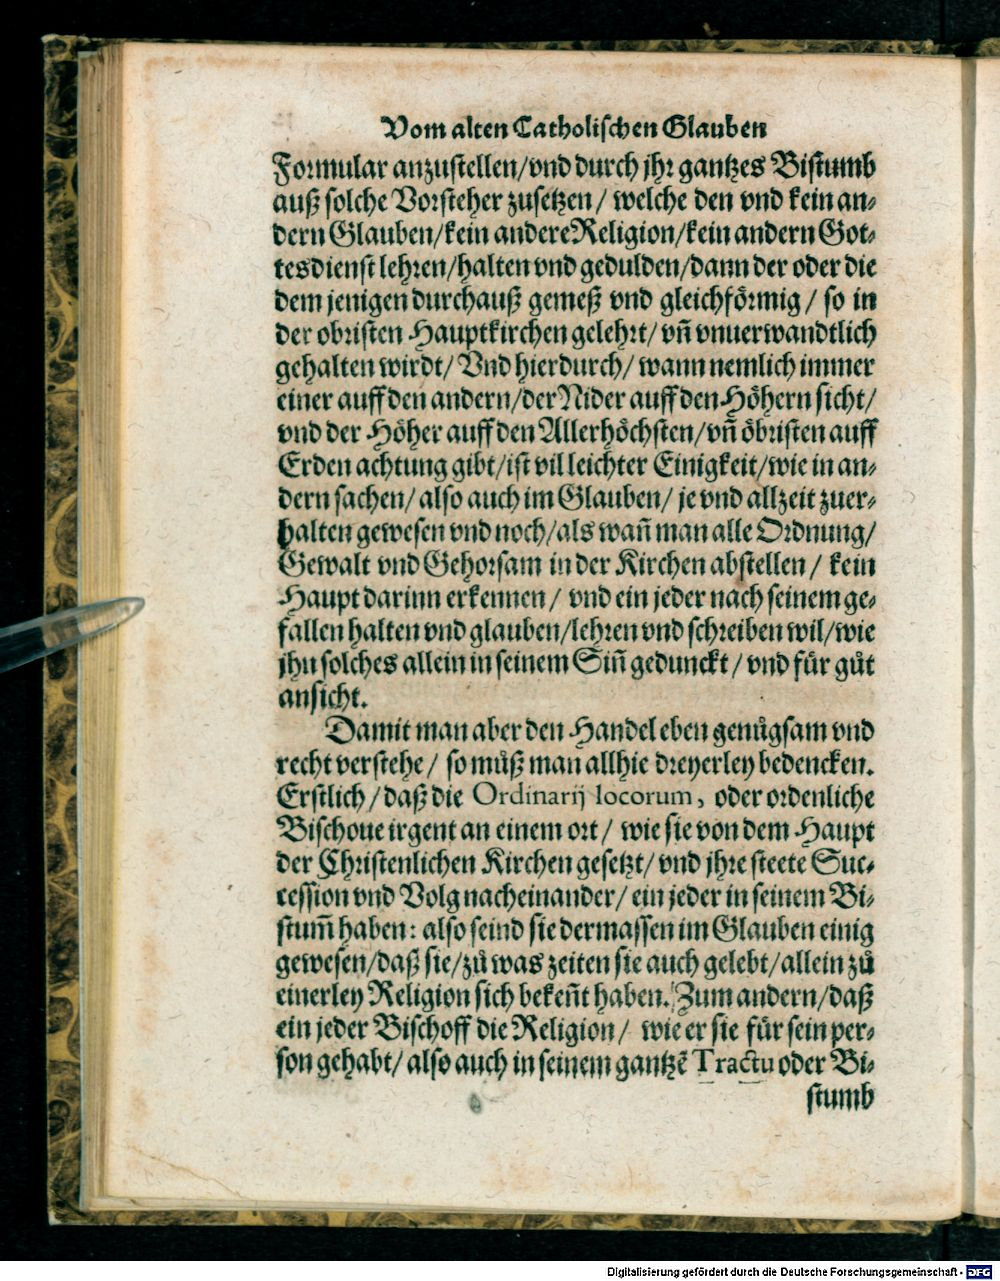 Vom alten Catholischen Glauben
Formular anzustellen/vnd durch jhr gantzes Bistumb
auß solche Vorsteher zusetzen/ welche den vnd kein an-
dern Glauben/kein andere Religion/kein andern Got-
tesdienst lehren/halten vnd gedulden/dann der oder die
dem jenigen durchauß gemeß vnd gleichförmig/ so in
der obristen Hauptkirchen gelehrt/ vñ vnuerwandtlich
gehalten wirdt/ Vnd hierdurch/ wann nemlich immer
einer auff den andern/der Nider auff den Höhern sicht/
vnd der Höher auff den Allerhöchsten/vñ öbristen auff
Erden achtung gibt/ist vil leichter Einigkeit/wie in an-
dern sachen/ also auch im Glauben/ je vnd allzeit zuer-
halten gewesen vnd noch/als wañ man alle Ordnung/
Gewalt vnd Gehorsam in der Kirchen abstellen/ kein
Haupt darinn erkennen/ vnd ein jeder nach seinem ge-
fallen halten vnd glauben/lehren vnd schreiben wil/wie
jhn solches allein in seinem Siñ gedunckt/ vnd für gůt
ansicht.
Damit man aber den Handel eben genůgsam vnd
recht verstehe/ so můß man allhie dreyerley bedencken.
Erstlich/daß die Ordinarij locorum, oder ordenliche
Bischoue irgent an einem ort/ wie sie von dem Haupt
der Christenlichen Kirchen gesetzt/ vnd jhre steete Suc-
cession vnd Volg nacheinander/ ein jeder in seinem Bi-
stum̃ haben: also seind sie dermassen im Glauben einig
gewesen/daß sie/zů was zeiten sie auch gelebt/allein zů
einerley Religion sich bekeñt haben. Zum andern/daß
ein jeder Bischoff die Religion/ wie er sie für sein per-
son gehabt/ also auch in seinem gantzẽ Tractu oder Bi-
stumb
Digitalisierung gefördert durch die Deutsche Forschungsgemeinschaft - DFG